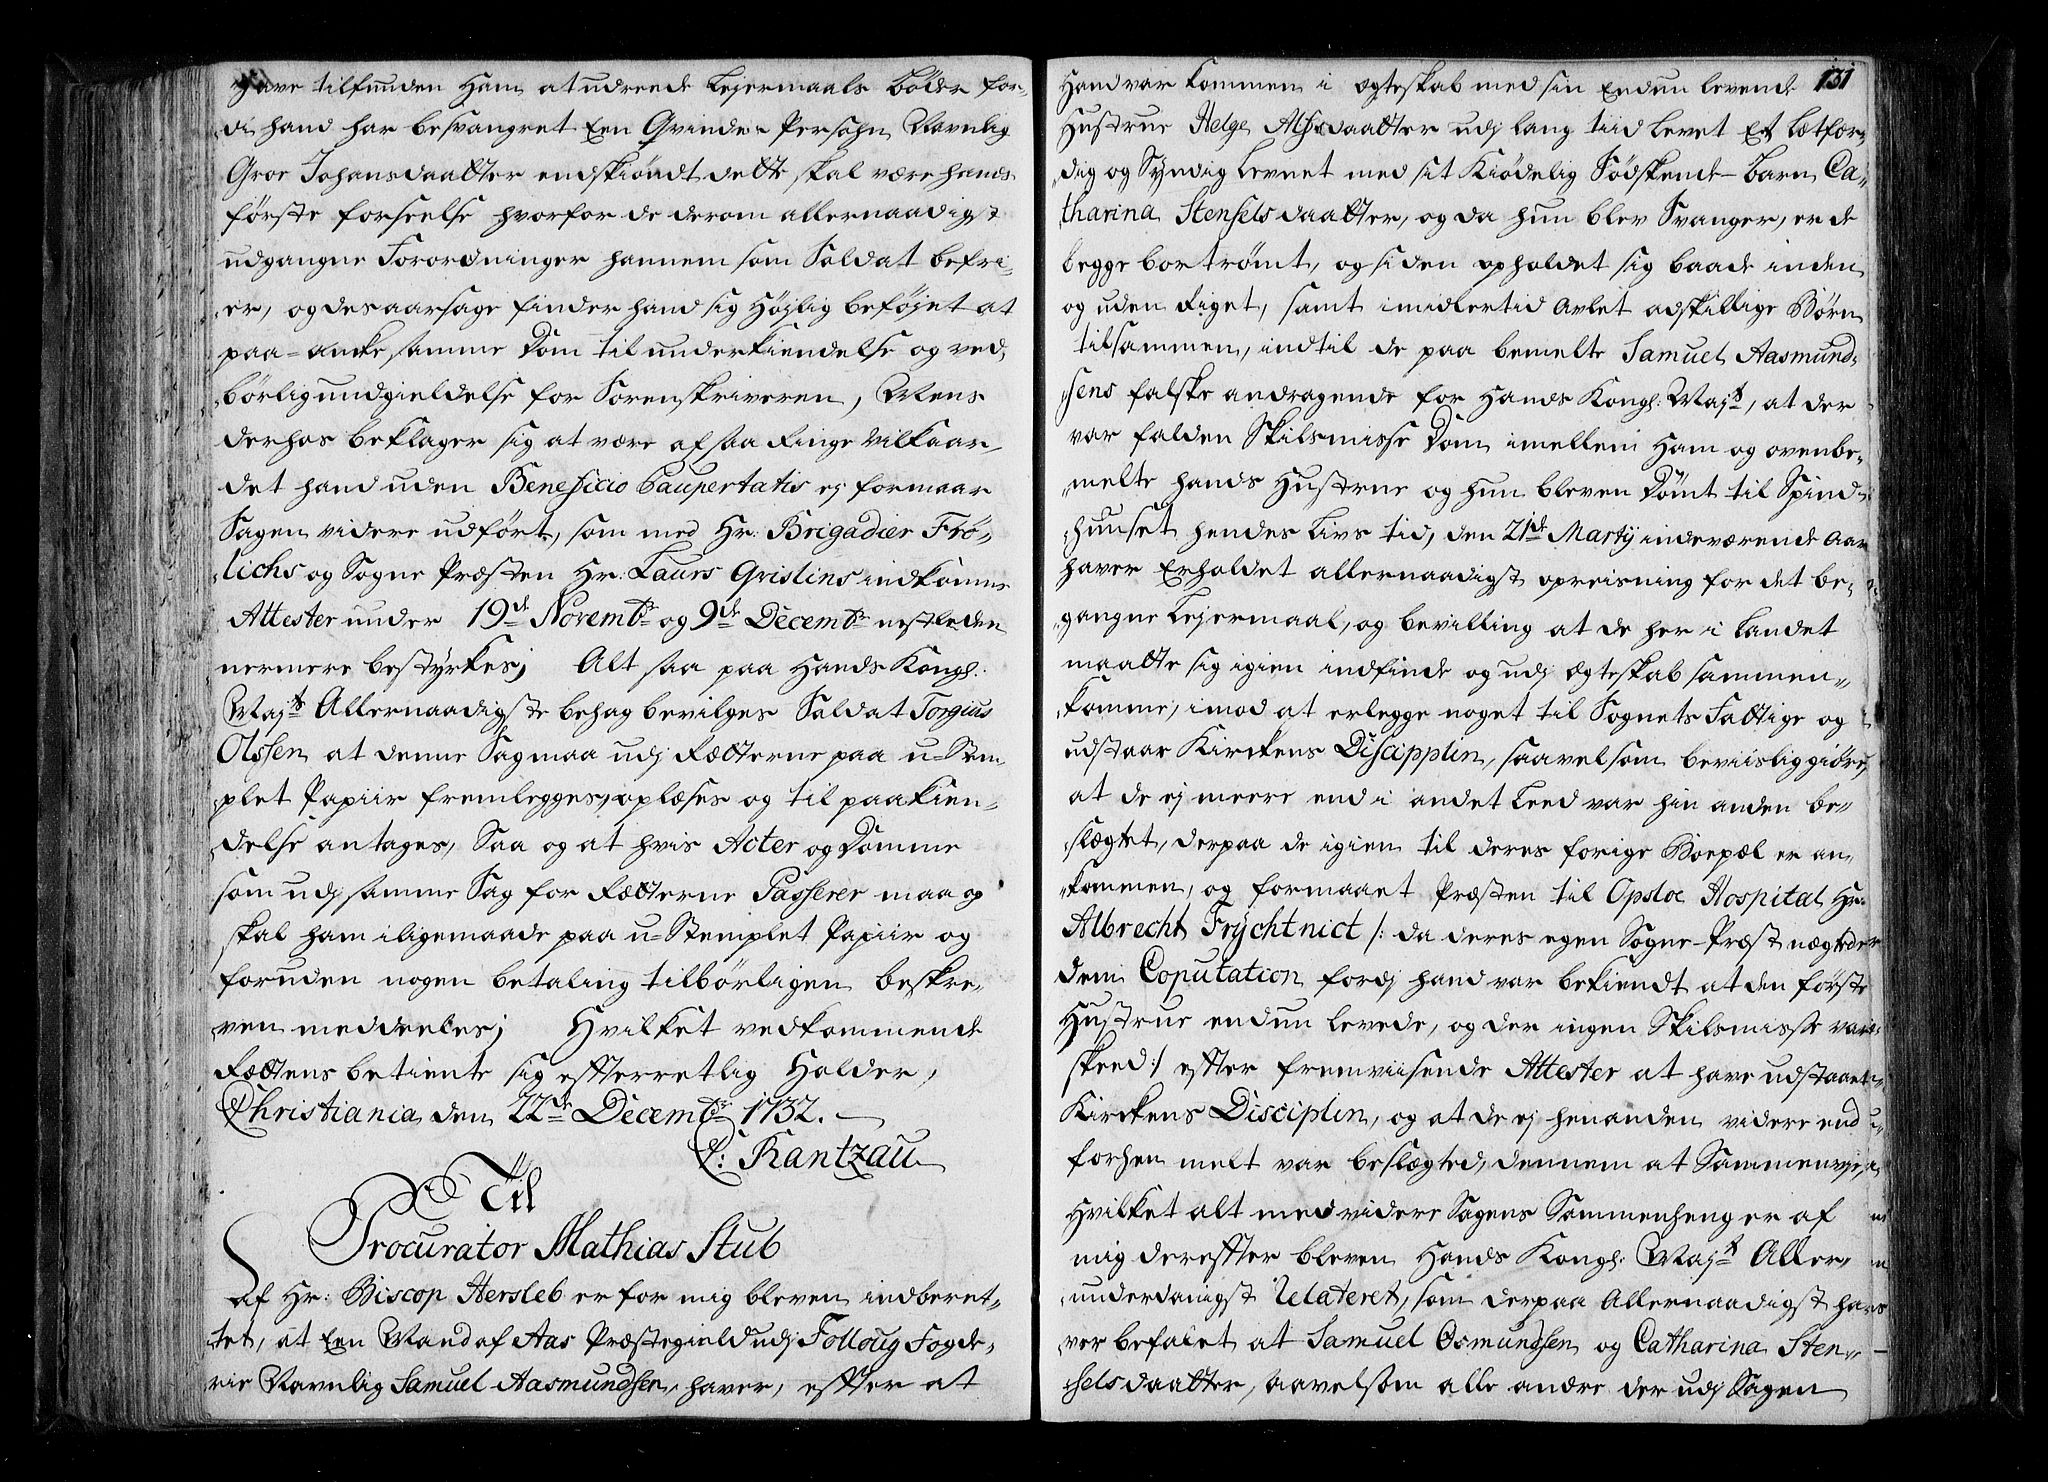 have tilfunden Ham at udreede Leiermaals Bøder for-
di hand har besvangret Een Qvinde-Persohn Navnlig
Groe Johansdaatter endskiøndt dette skal være hands
første forseelse hvorfor de derom allernaadigst
udgangne Forordninger hannem som Soldat befri-
er, og desaarsage finder hand sig Højlig beføjet at
paa-ancke samme Dom til underkiendelse og ved-
børlig undgieldelse for Sorenskriveren, Mens
derhos beklager sig at være af saa Ringe Vilkaar
det hand uden Beneficio Paupertatis ej formaar
Sagen videre udført, som med Hr: Brigadier Frø-
lichs og Sogne Præsten Hr: Laurs Qvislins indkomne
Attester under 19de Novembr og 9de Decembr nestleden
nermere bestyrkes; Alt saa paa Hands Kongl:
Majts Allernaadigste behag bevilges Soldat Torgius
Olssen at denne Sag maa udj Rætterne paa u-Stem-
plet Papiir fremlegges, oplæses og til paakien-
delse antages, Saa og at hvis Acter og Domme
som udj samme Sag for Rætterne Passerer maa og
skal ham iligemaade paa u-Stemplet Papiir og
foruden nogen betaling tilbørligen beskre-
ven meddeeles; Hvilket vedkommende
Rættens betiente sig efterretlig Holder,
Christiania den 22de Decembr 1732.
C: Rantzau
Til
Procurator Mathias Stub
Af Hr: Biscop Hersleb er for mig bleven indberet-
tet, at Een Mand af Aas Præstegield udj Folloug Fogde-
rie Navnlig Samuel Aasmundsen, haver, effter at
131
Hand var kommen i Ægteskab med sin Endnu levende
Hustrue Helge Alfsdaatter udj lang tiid levet Et letfær-
dig og Syndig Levnet med sit Kiødelig Sødskende-Barn Ca-
tharina Stenselsdaatter, og da hun blev Svanger, er de
begge bortrømt, og siden opholdet sig baade inden
og uden Riget, samt imidlertid avlet adskillige Børn
tilsammen, indtil de paa bemelte Samuel Aasmund-
sens falske andragende for Hands Kongl: Majt, at der
var falden Skilsmisse Dom imellem Ham og ovenbe-
melte hands Hustrue og hun bleven Dømt til Spind-
huuset hendes Livs tid, den 21de Martij indeværende Aar
haver Erholdet allernaadigst opreisning for det be-
gangne Leiermaal, og bevilling at de her i Landet
maatte sig igien indfinde og udj Ægteskab sammen-
komme, imod at erlegge noget til Sognets Fattige og
udstaar Kirckens Discipplin, saavelsom beviislig giøre,
at de ej meere end i andet Leed var hin anden be-
slægtet, derpaa de igien til deres forige Boepæl er an-
kommen, og formaaet Præsten til Opsloe Hospital Hr:
Albrecht Frychtnict /: da deres egen Sogne-Præst nægteder
dem Coputation fordj hand var bekiendt at den første
Hustrue endnu levede, og der ingen Skilsmisse var
skeed:/ efter fremviisende Attester at have udstaaet
Kirckens Disciplin, og at de ej henanden videre end
forhen melt var beslægted, dennem at Sammenvie,
Hvilket alt med videre Sagens Sammenheng er af
mig dereffter bleven Hands Kongl: Majt Aller-
underdanigst Relateret, som derpaa Allernaadigst ha-
ver befalet at Samuel Osmundsen og Catharina Sten-
selsdaatter, saavelsom alle andre der udj Sagen